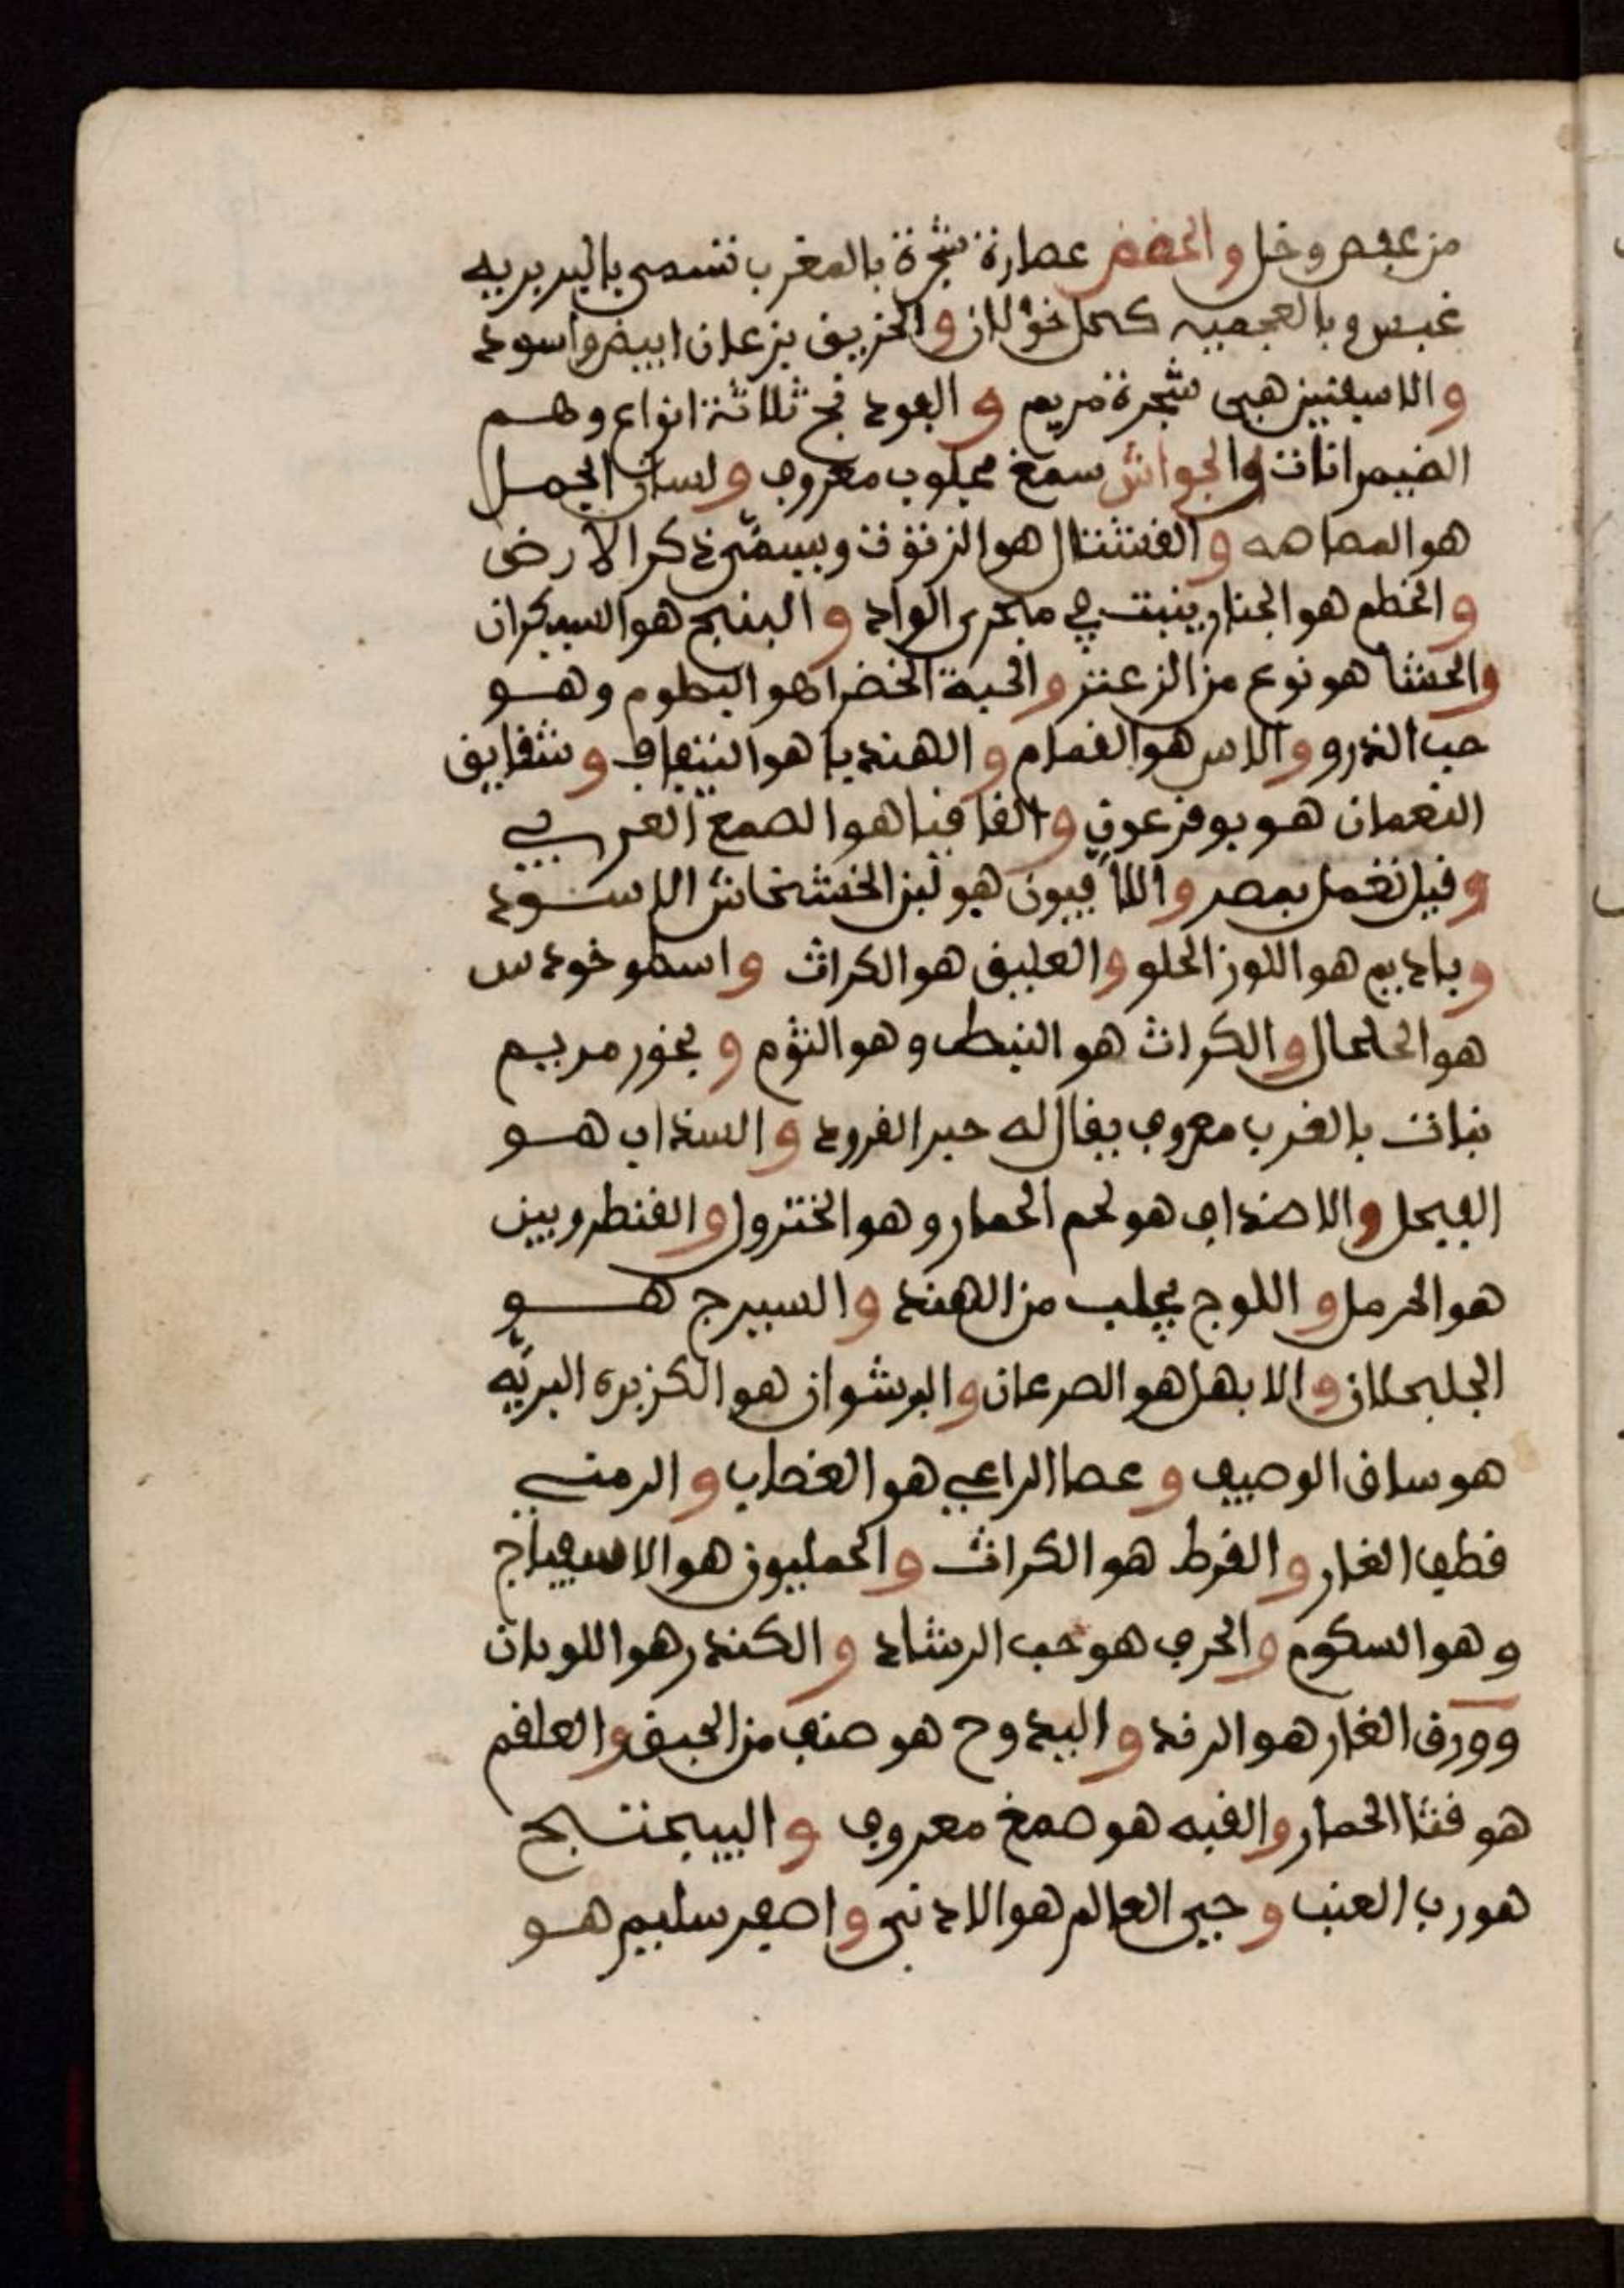 من عفص وخل والحضض عصارة شجرة بالمغرب تسمى بالبربريه
غبس وبالعجميه كحل خولان والخربق نزعان ابيض واسود
والاسفنيز هي شجرة مريم والفودنج ثلاثة انواع وهم
الضيمرانات والجواش سمغ مجلوب معروف ولسان الحمل
هو المصاصه والقشتال هو الزنوت ويسمى ذكر الارض
والخطم هو الجنار ينبت في مجرى الواد والبنج هو السيكران
والحشا هو نوع من الزعتر والحبة الخضرا هو البطوم وهو
حب الذرو والاس هو القمام والهنديا هو التيفاف وشقايق
النعمان هو بوقرعون والقاقيا هو الصمغ العربي
وقيل تعمل بمصر واللافيون هو لبن الخشخاش الاسود
وباديم هو اللوز الحلو والعليق هو الكراث واسطوخودس
هو الحلحال والكراث هو النبط وهو الثوم وبخور مريم
نبات بالغرب معروف يقال له خبز القرود والسذاب هو
الفيجل والاصداف هو لحم الحمار وهو الخنزول والقنطروين
هو الحرمل واللوج يجلب من الهند والسيرج هو
الجلجلان والابهل هو الصرعان والبرشوان هو الكزبره البريّه
هو ساق الوصيف وعصا الراعي هو الغضاب والرمنى
قطف الغار والقرط هو الكراث والحمليون هو الاسفيناج
وهو السكوم والحرف هو حب الرشاد والكندر هو اللوبان
وورق الغار هو الرند والبيدوح هو صنف من الحبق والعلقم
هو قثا الحمار والقبه هو صمغ معروف والبيمنتج
هو رب العنب وحي العالم هو الادنى واصفر سليم هو